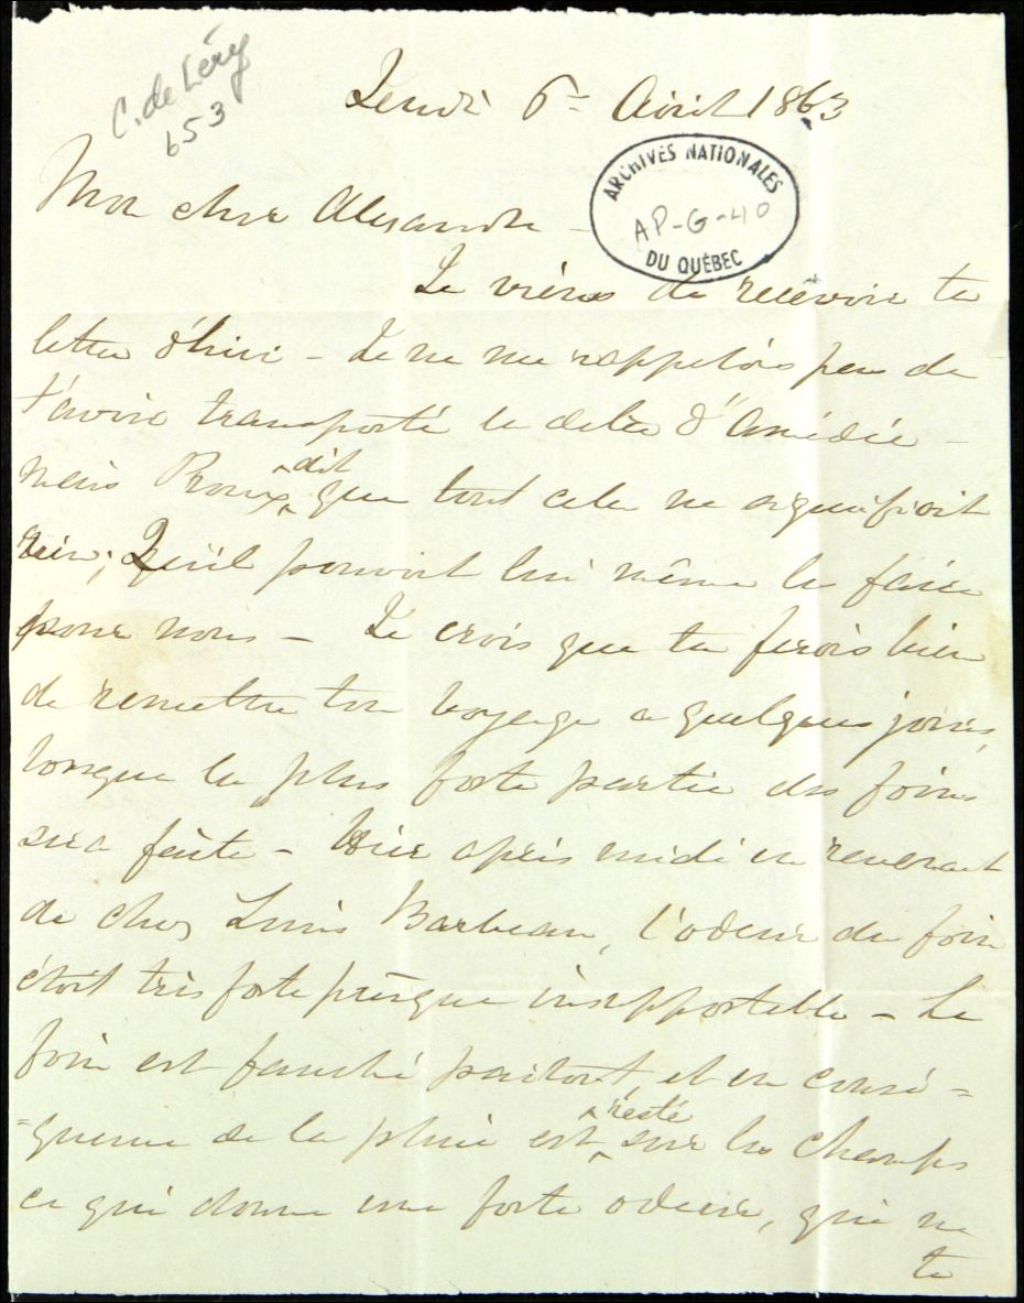 C. de Léry
653
Jeudi 6 = Avril 1863
ARCHIVES NATIONALES
AP-G-40
DU QUÉBEC
Mon cher Alexandre -
Je viens de recevoir ta
lettre d'hier - Je ne me rappelois pas de
t'avoir transporté la dette d'Amédée -
mais Roux dit que tout cela ne signifioit
rien; Qu'il pouvoit lui même le faire
pour nous - Je crois que tu ferois bien
de remettre ton voyage a quelques jours,
lorsque la plus forte partie des foins
sera faite - Hier après midi en revenant
de chez Louis Barbeau, l'odeur du foin
étoit très forte présque insupportable - Le
foin est fauché partout, et en consé =
= quence de la pluie est resté sur les champs
ce qui donne une forte odeur, qui ne
te